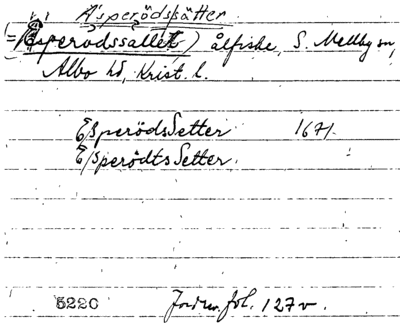 Äsperödssätter
(= Esperödssallet) ålfiske, S. Mellby sn,
Albo hd, Krist. l.
EsperödsSetter 1671.
EsperödtsSetter.
5220 Jordr. fol. 127v.